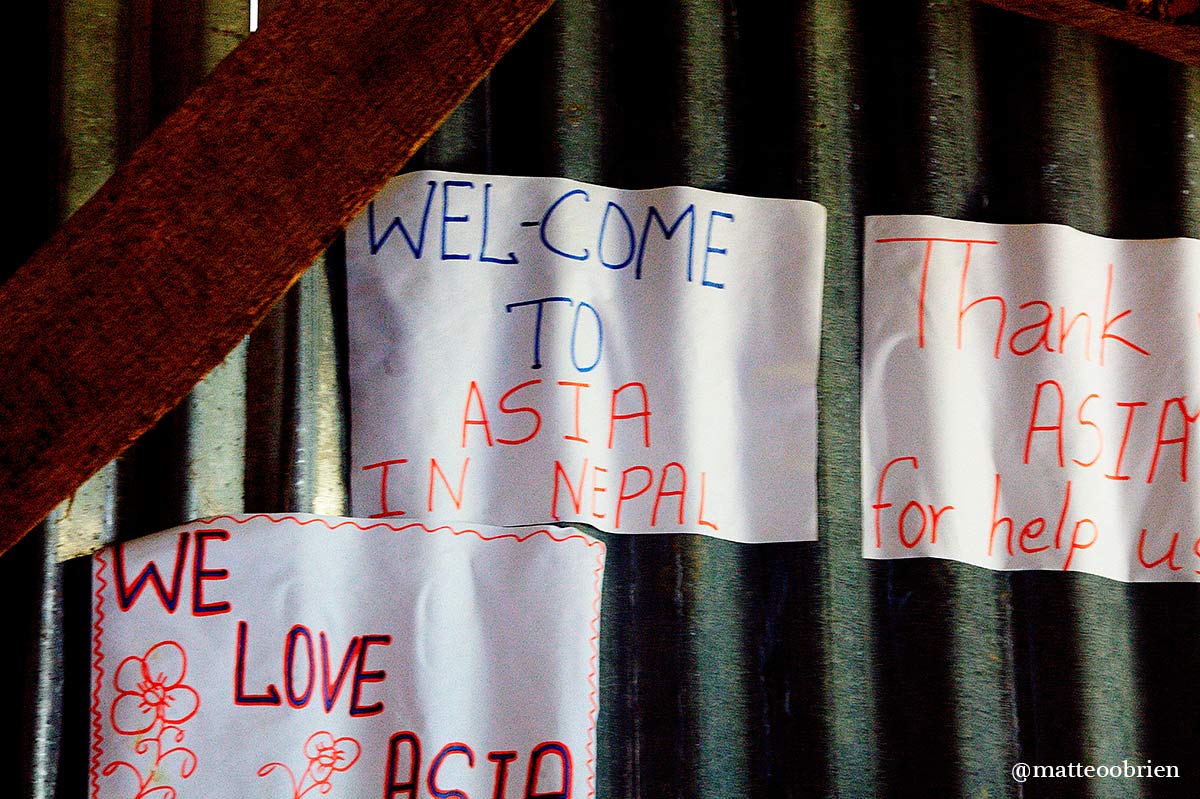 WEL-COME
TO
ASIA
IN NEPAL
Thank
ASIA
for help us
WE
LOVE
ASIA
@matteoobrien